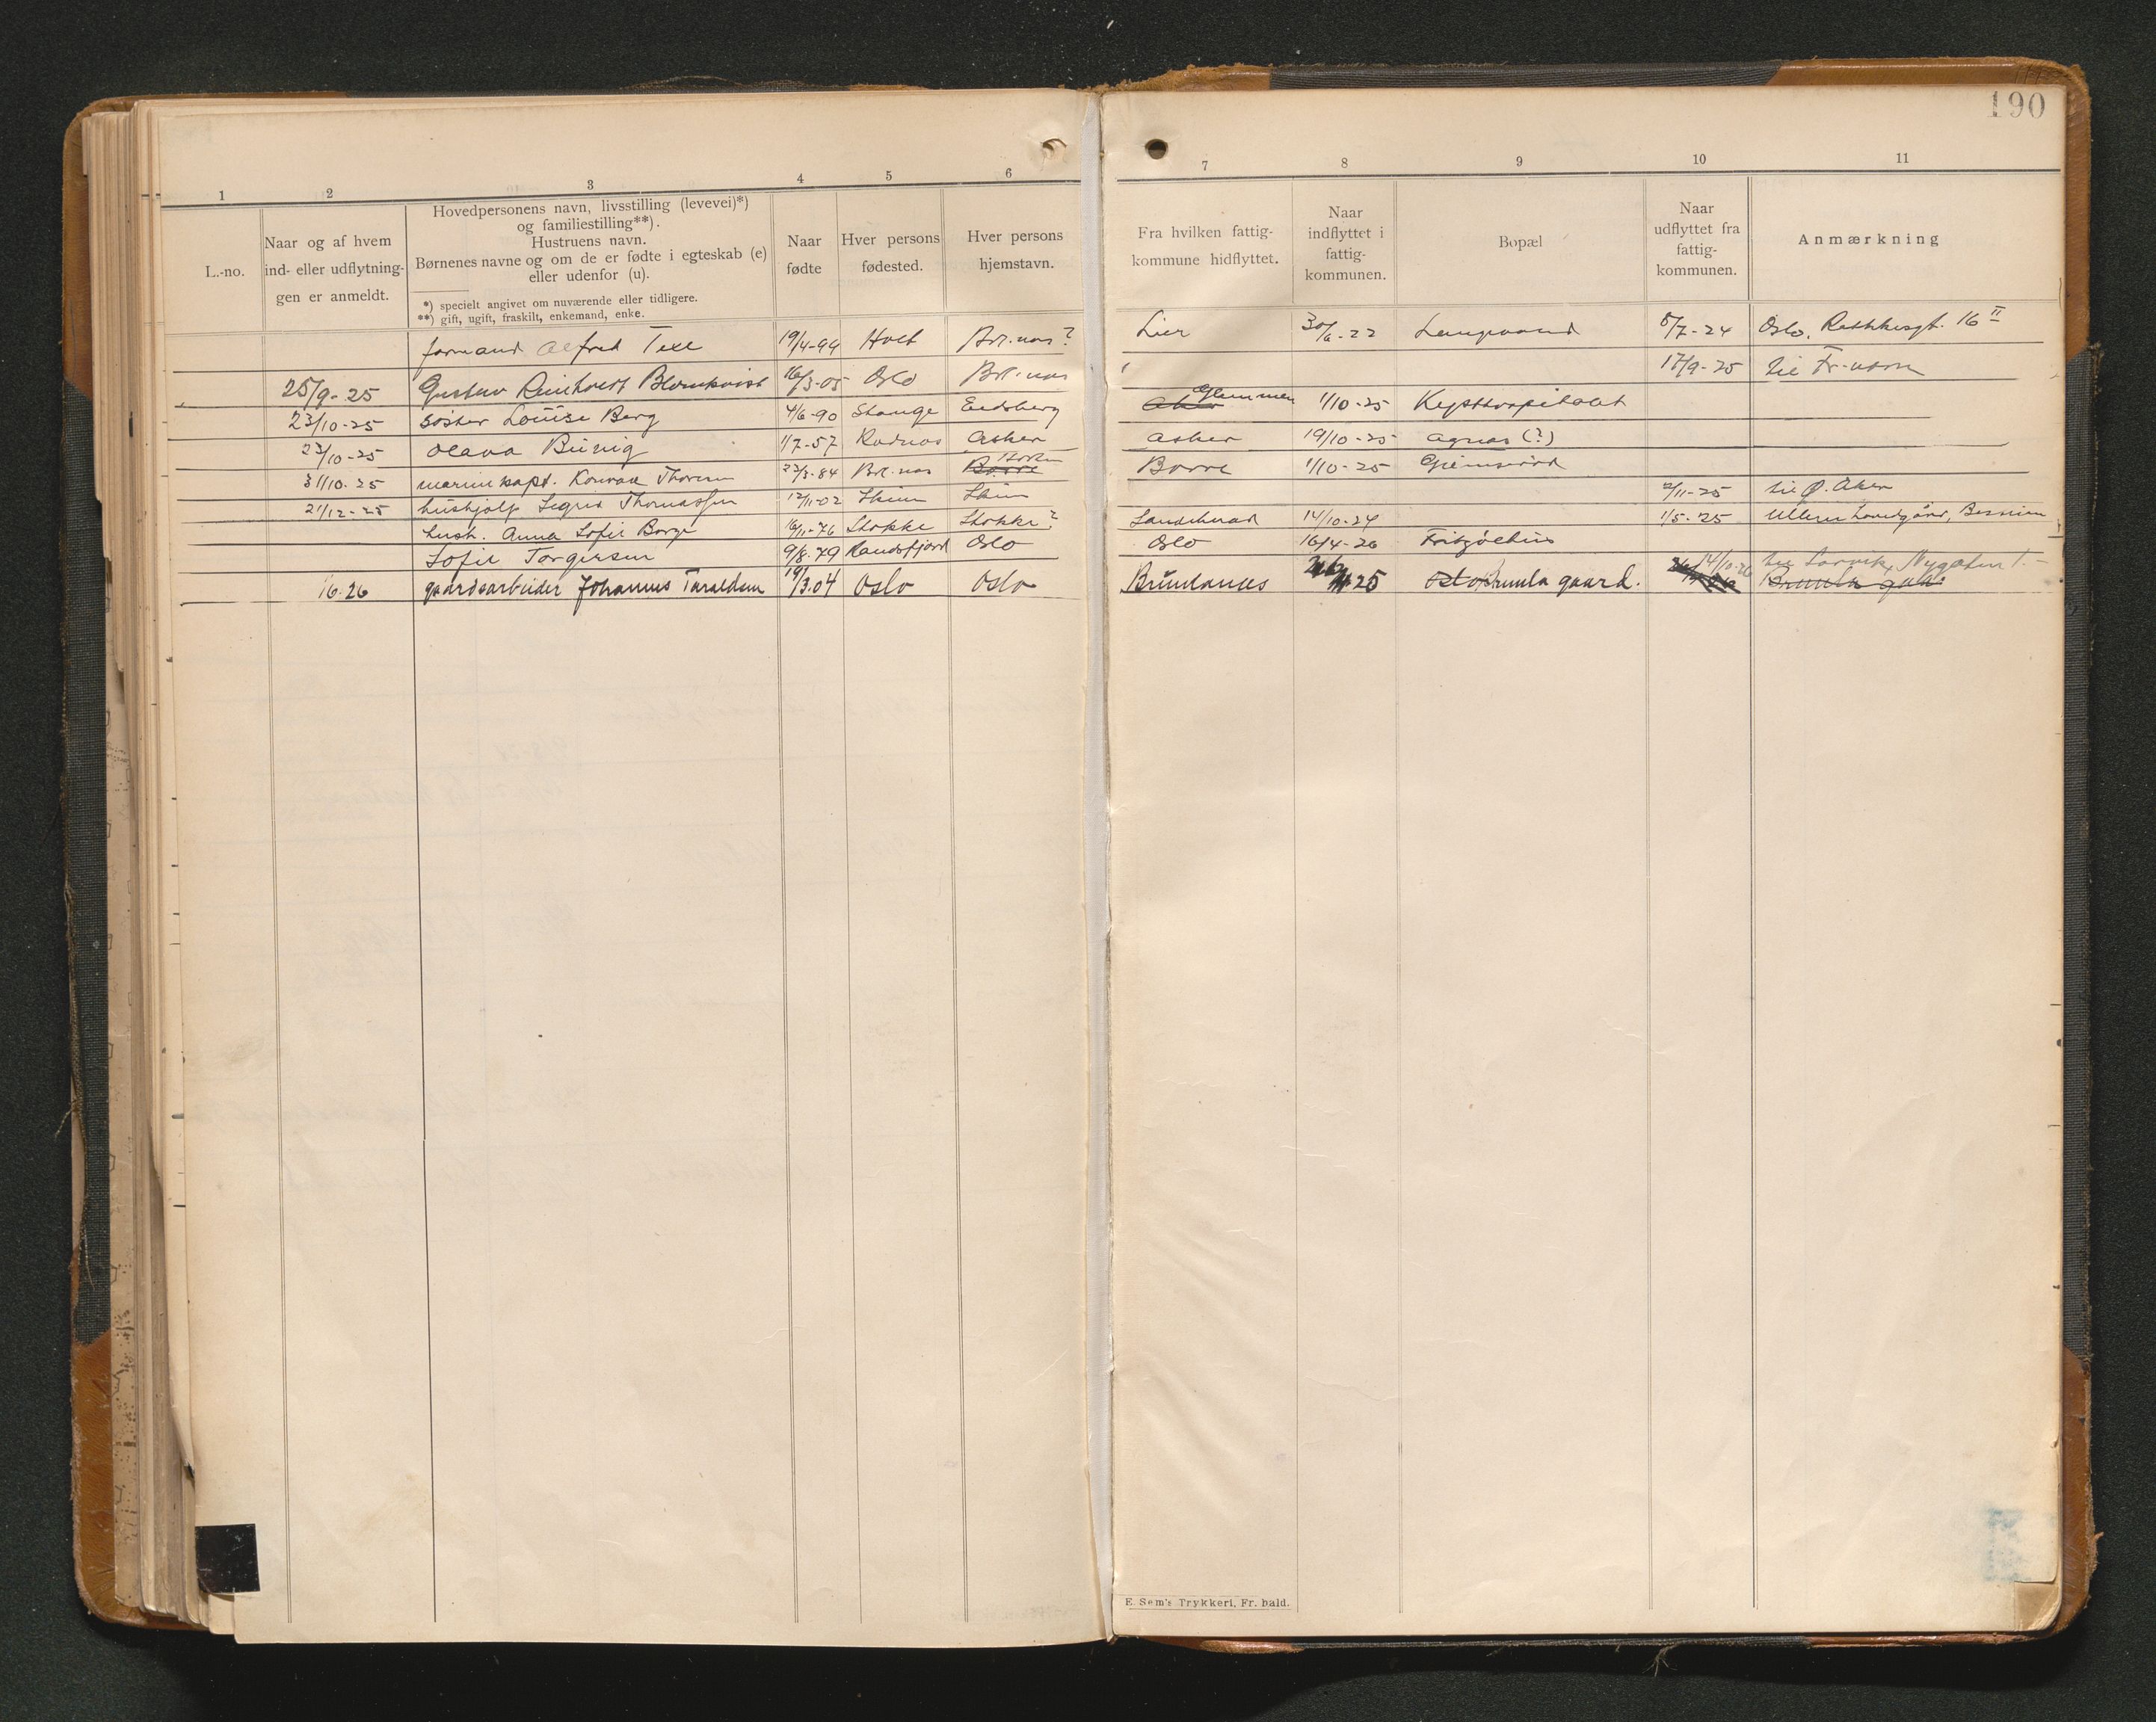 190
1 2 3 4 5 6 7 8 9 10 11
L.-no.
Naar og af hvem
ind- eller udflytnin-
gen er anmeldt.
Hovedpersonens navn, livsstilling (levevei)*)
og familiestilling**).
Hustruens navn.
Børnenes navne og om de er fødte i egteskab (e)
eller udenfor (u).
*) specielt angivet om nuværende eller tidligere.
**) gift, ugift, fraskilt, enkemand, enke.
Naar
fødte
Hver persons
fødested.
Hver persons
hjemstavn.
Fra hvilken fattig-
kommune hidflyttet.
Naar
indflyttet i
fattig-
kommunen.
Bopæl
Naar
udflyttet fra
fattig-
kommunen.
Anmærkning
formand Alfred Texe 19/4-99 Holt Brl.nas? Lier 30/6-22 Langvand 5/7-24 Oslo, 16 II
25/9-25 Gustav Reinholdt Blomkvist 16/3-05 Oslo Brl.nas 17/9-25 til Fr.værn
23/10-25 søster Louise Berg 4/6-90 Stange Eidsberg Aker Glemmen 1/10-25 Kysthospitalet
23/10-25 Olava Bünig 1/7-57 Asker Asker 19/10-25 Agnes (?)
31/10-25 marinekapt. Konrad Thoresen 23/3-84 Brl.nas Borre Horten Borre 1/10-25
21/12-25 hushjelp Sigrid Thomassen 12/11-02 Skien Skien 2/11-25 til Ø. Aker
hush. Anna Sofie Borge 16/11-76 Stokke Stokke? Sandeherad 14/10-24 1/5-25
Sofie Torgersen 9/8-79 Oslo Oslo 16/4-26 Fritzøehus
16-26 gaardsarbeider Johannes Taraldsen 19/3.04 Oslo Oslo Brunlanes 25 Oslo, Brunla gaard. 14/10-26 til Larvik, Nygaten 1.-
Brunla gaard
E. Sem's Trykkeri, Fr.hald.